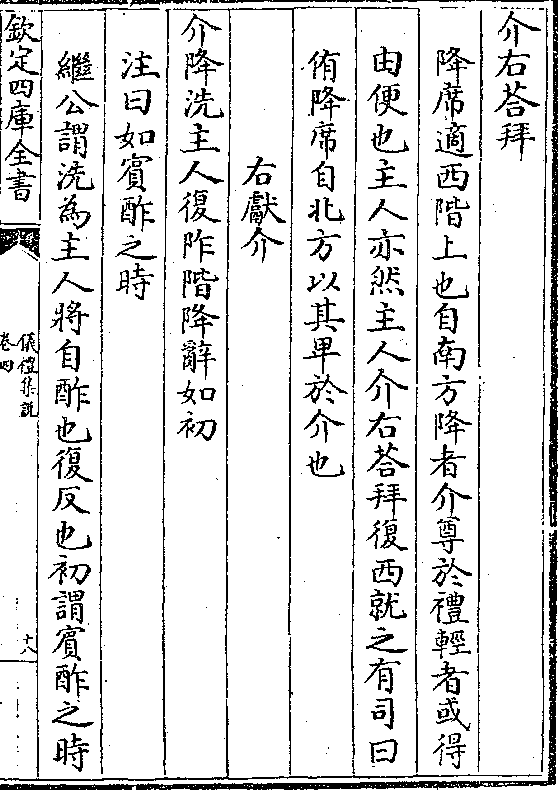 介右荅拜
降席適西階上也自南方降者介尊於禮輕者或得
由便也主人亦然主人介右荅拜復西就之有司曰
侑降席自北方以其卑於介也
右獻介
介降洗主人復阼階降辭如初
注曰如賓酢之時
繼公謂洗為主人將自酢也復反也初謂賓酢之時
欽定四庫全書
儀禮集說
卷四
十八